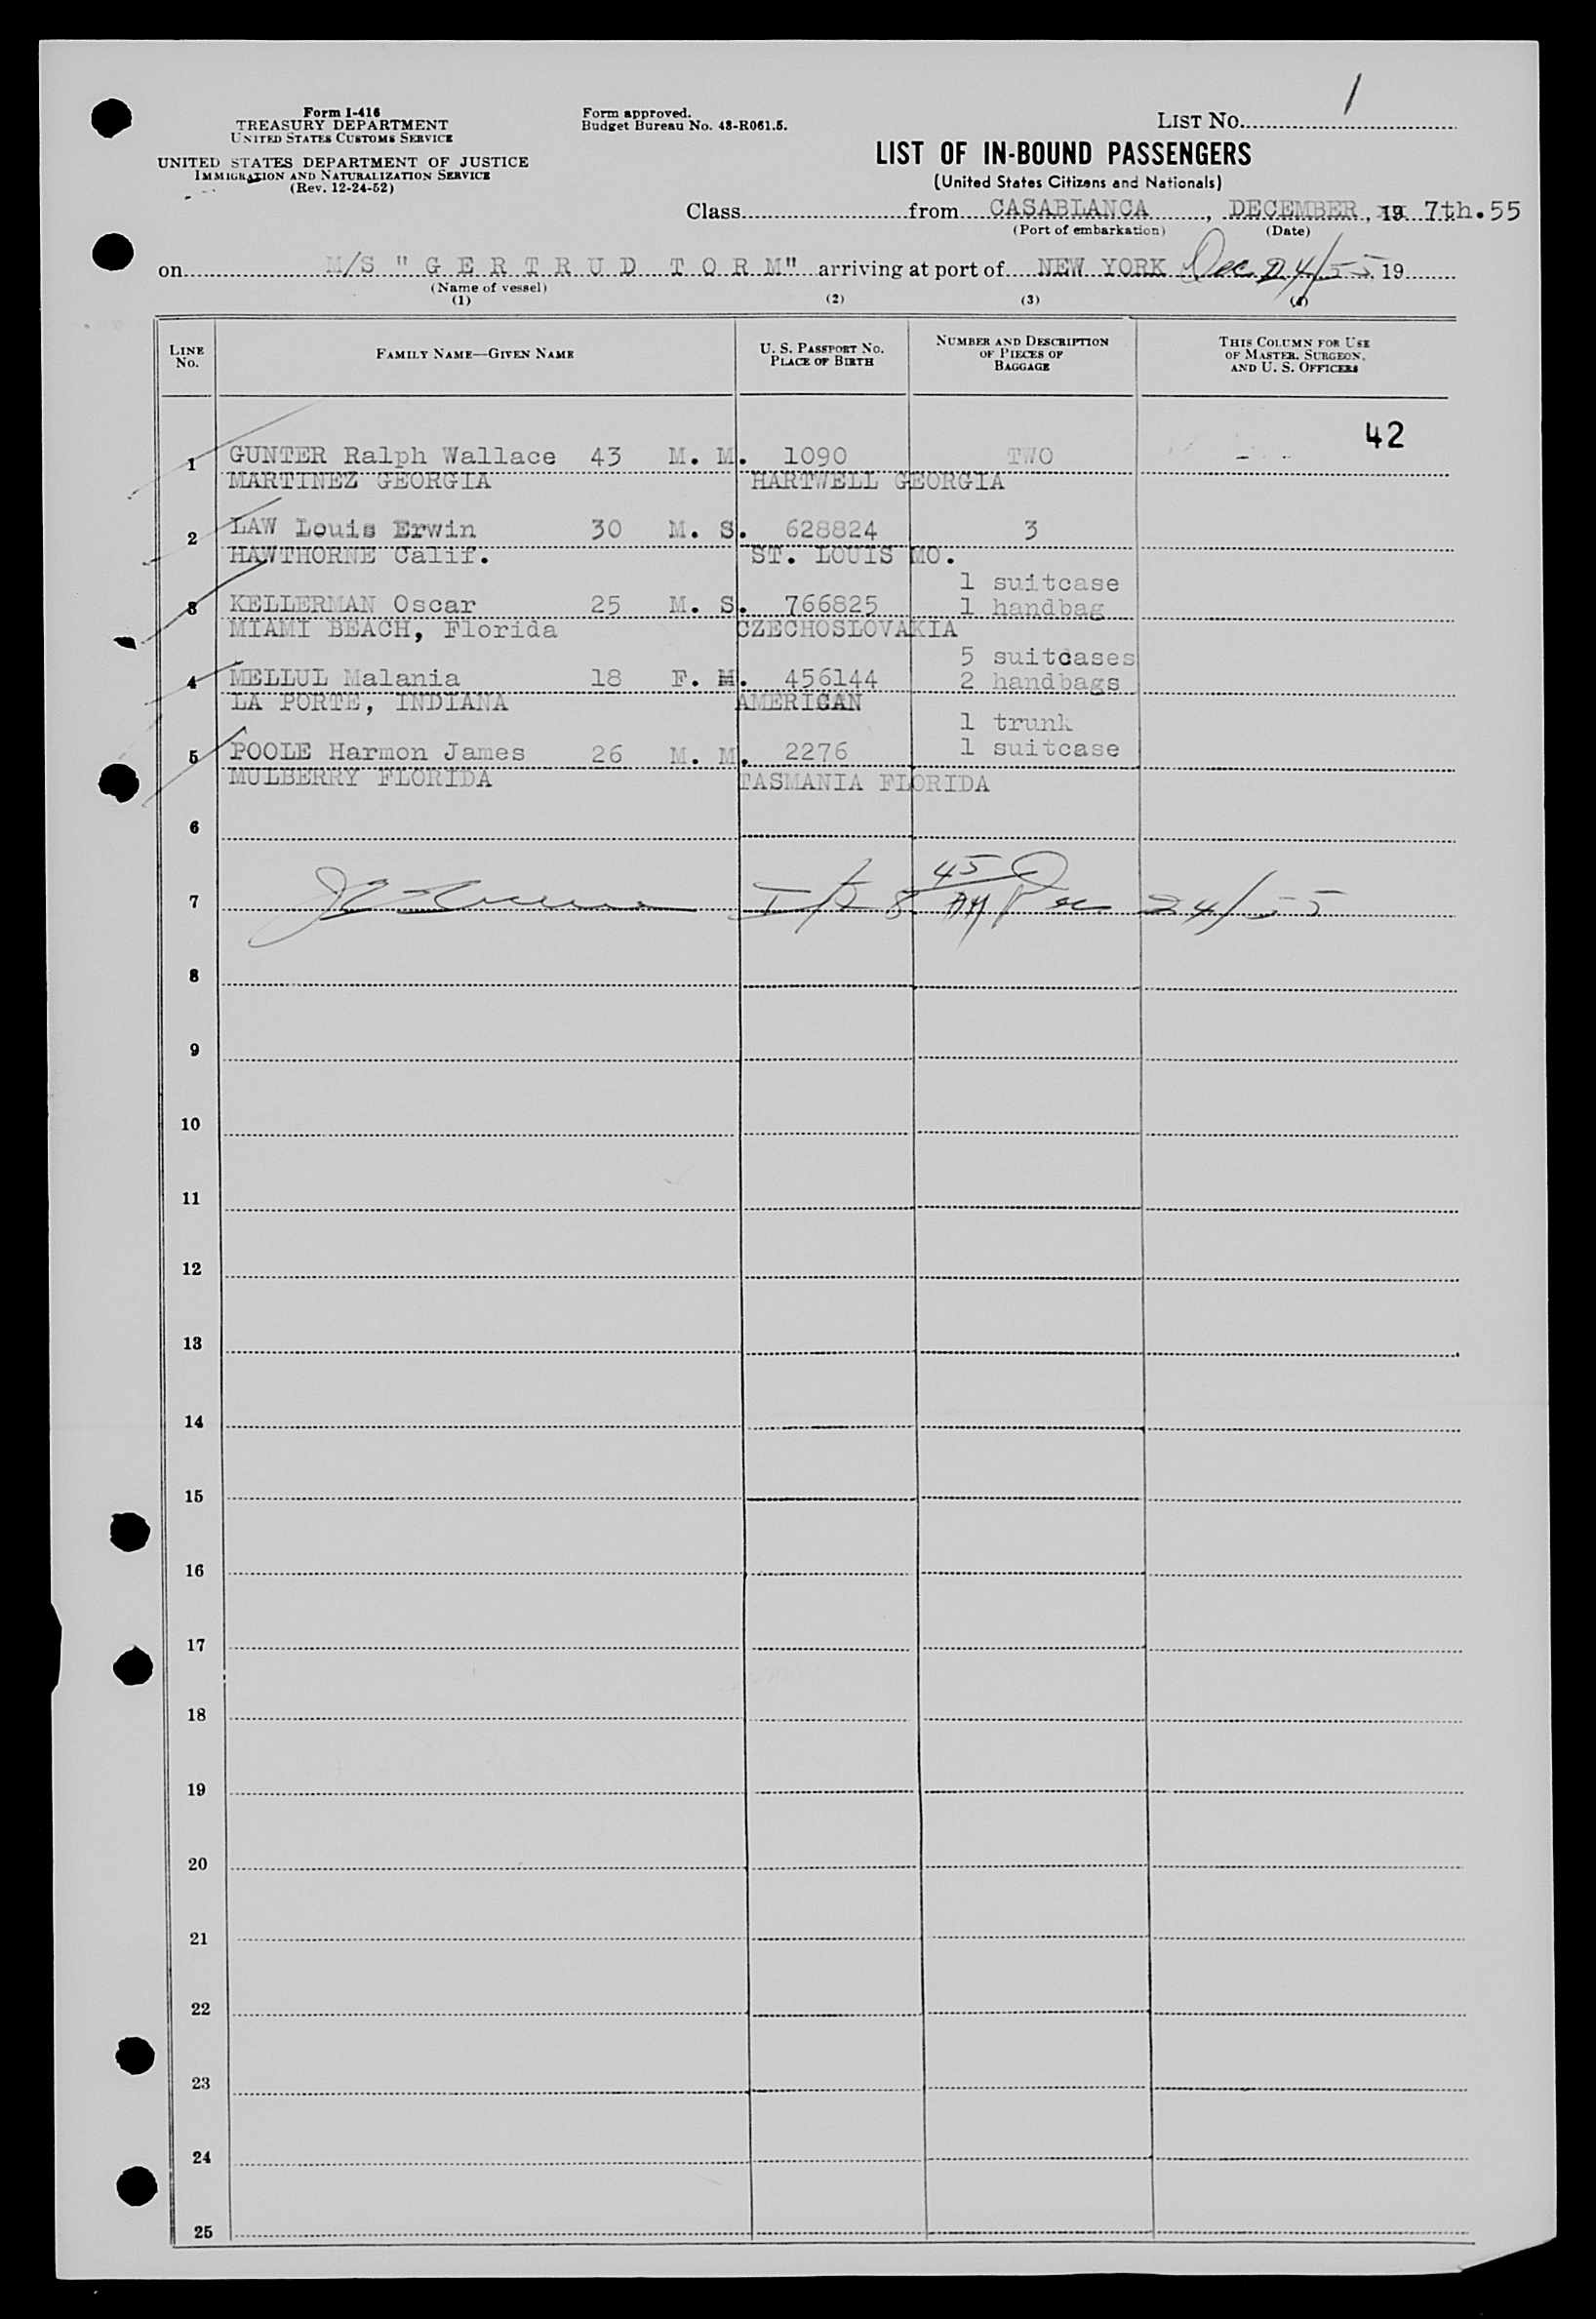 Form I-416
TREASURY DEPARTMENT
UNITED STATES CUSTOMS SERVICE
UNITED STATES DEPARTMENT OF JUSTICE
IMMIGRATION AND NATURALIZATION SERVICE
(Rev. 12-24-52)
Form approved.
Budget Bureau No. 43-R061.5.
LIST NO. 1
LIST OF IN-BOUND PASSENGERS
(United States Citizens and Nationals)
Class from CASABLANCA, DECEMBER, 19 7th.55
(Port of embarkation) (Date)
on M/S "GERTRUD TORM" arriving at port of NEW YORK Dec 24/55, 19
(Name of vessel)
(1) (2) (3) (4)
LINE NO. FAMILY NAME—GIVEN NAME U. S. PASSPORT NO. PLACE OF BIRTH NUMBER AND DESCRIPTION OF PIECES OF BAGGAGE THIS COLUMN FOR USE OF MASTER, SURGEON, AND U. S. OFFICERS
42
1 GUNTER Ralph Wallace 43 M. M. 1090 TWO
MARTINEZ GEORGIA HARTWELL GEORGIA
2 LAW Louis Erwin 30 M. S. 628824 3
HAWTHORNE Calif. ST. LOUIS MO.
1 suitcase
3 KELLERMAN Oscar 25 M. S. 766825 1 handbag
MIAMI BEACH, Florida CZECHOSLOVAKIA
5 suitcases
4 MELLUL Malania 18 F. M. 456144 2 handbags
LA PORTE, INDIANA AMERICAN
1 trunk
5 POOLE Harmon James 26 M. M. 2276 1 suitcase
MULBERRY FLORIDA TASMANIA FLORIDA
6
7 8 45 AM Dec 24/55
8
9
10
11
12
13
14
15
16
17
18
19
20
21
22
23
24
25